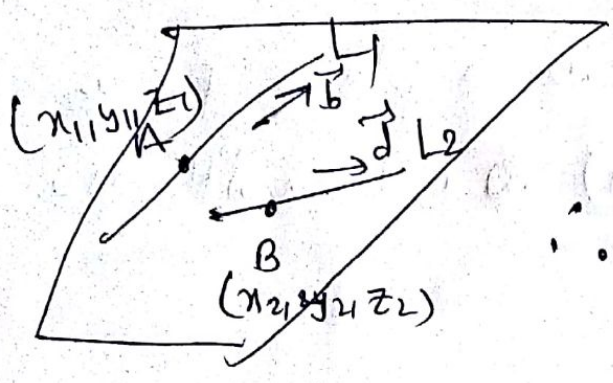 L1
b
(x1, y1, z1)
A
d L2
B
(x2, y2, z2)
∴